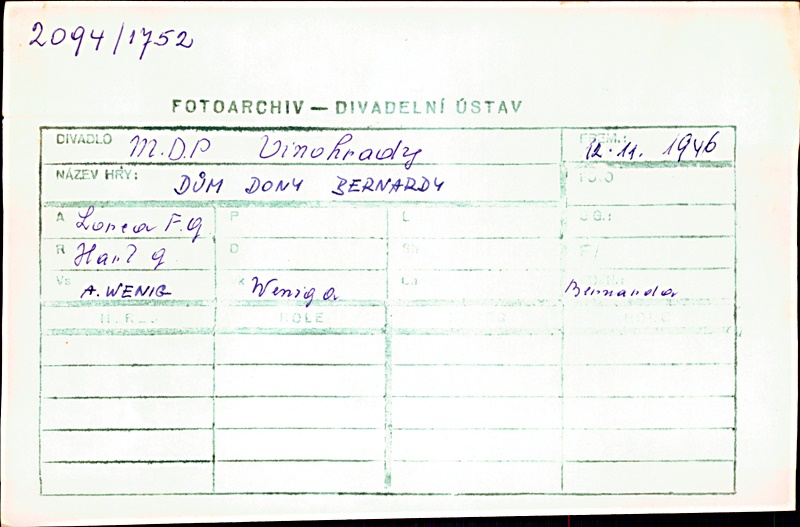 2094/1752
FOTOARCHIV — DIVADELNÍ ÚSTAV
DIVADLO M.D.P Vinohrady PREM.: 12.11. 1946
NÁZEV HRY: DŮM DONY BERNARDY
A Lorca F.G P L
R Harl G D
Vs A. WENIG K Weniga Bernarda
ROLE